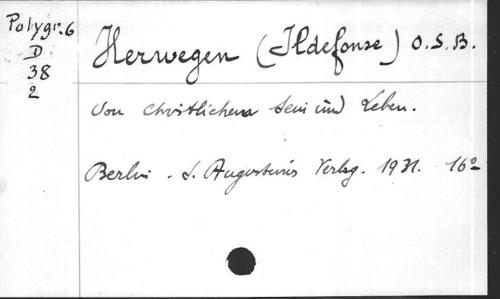 Polygr. 6
D
38
2
Herwegen (Ildefonse) O.S.B.
Von christlichem Sein und Leben.
Berlin. S. Augustinus Verlag. 1931. 16º